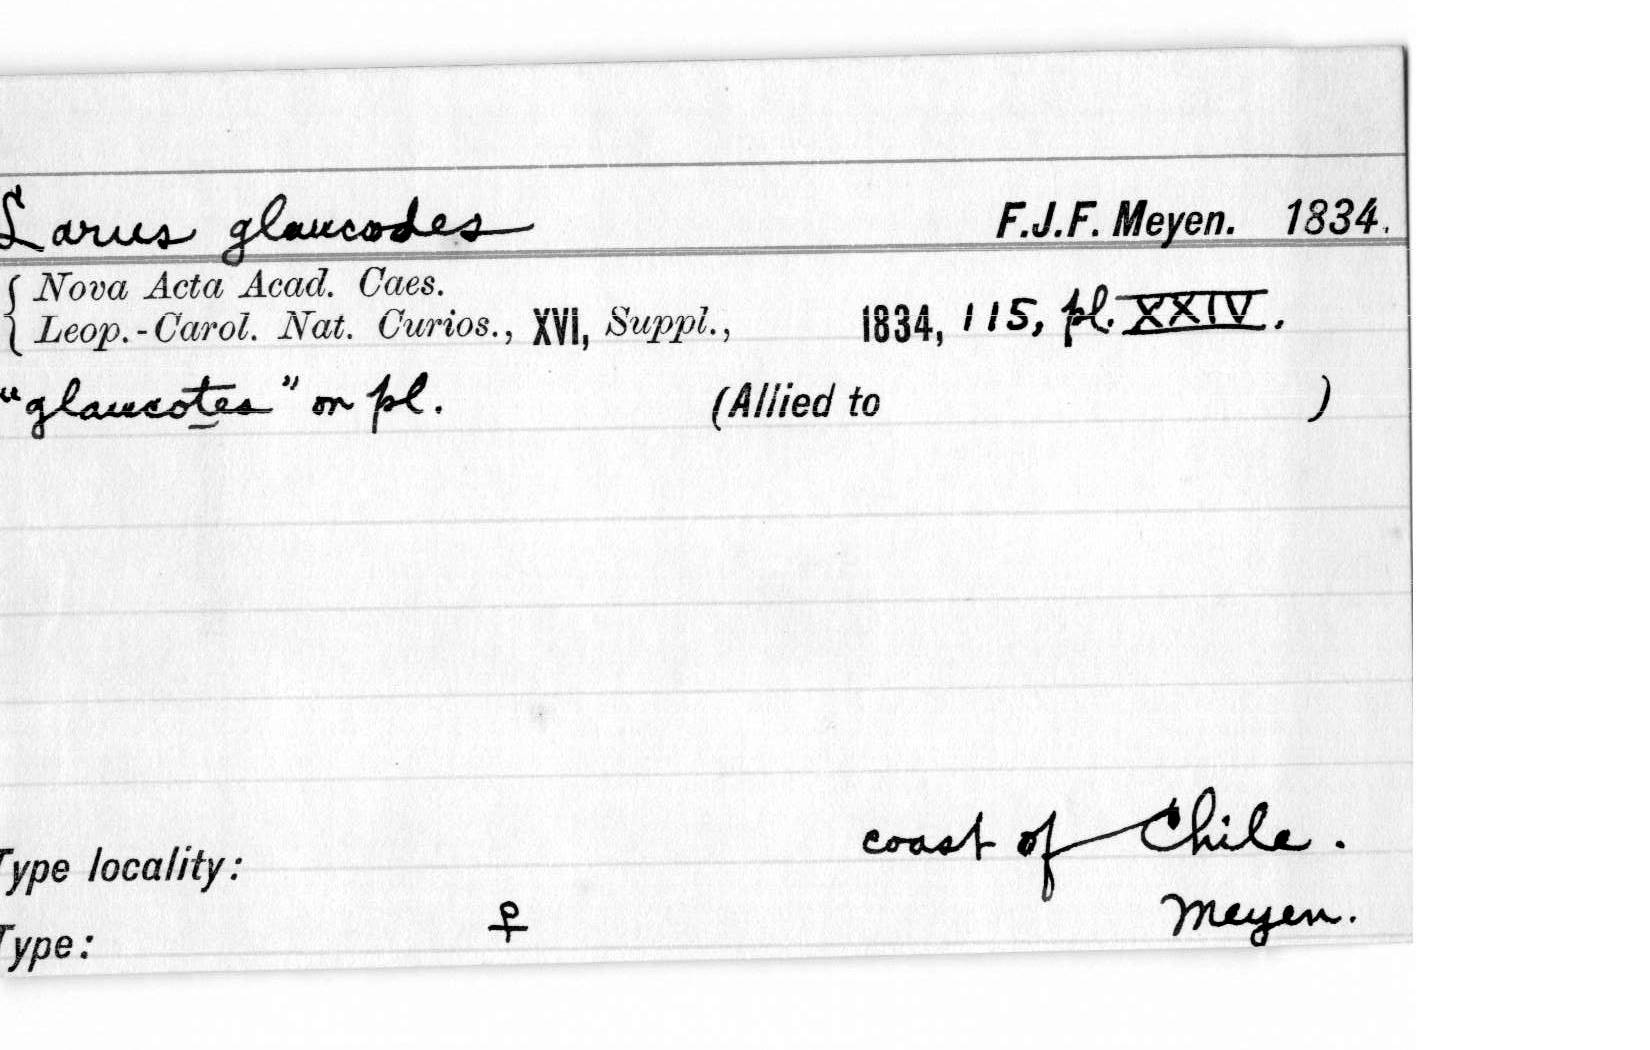 Larus glaucodes F.J.F. Meyen. 1834.
Nova Acta Acad. Caes.
Leop.-Carol. Nat. Curios., XVI, Suppl., 1834, 115, pl. XXIV.
"glaucotes" on pl. (Allied to )
Type locality: coast of Chile.
Type: ♀ Meyen.